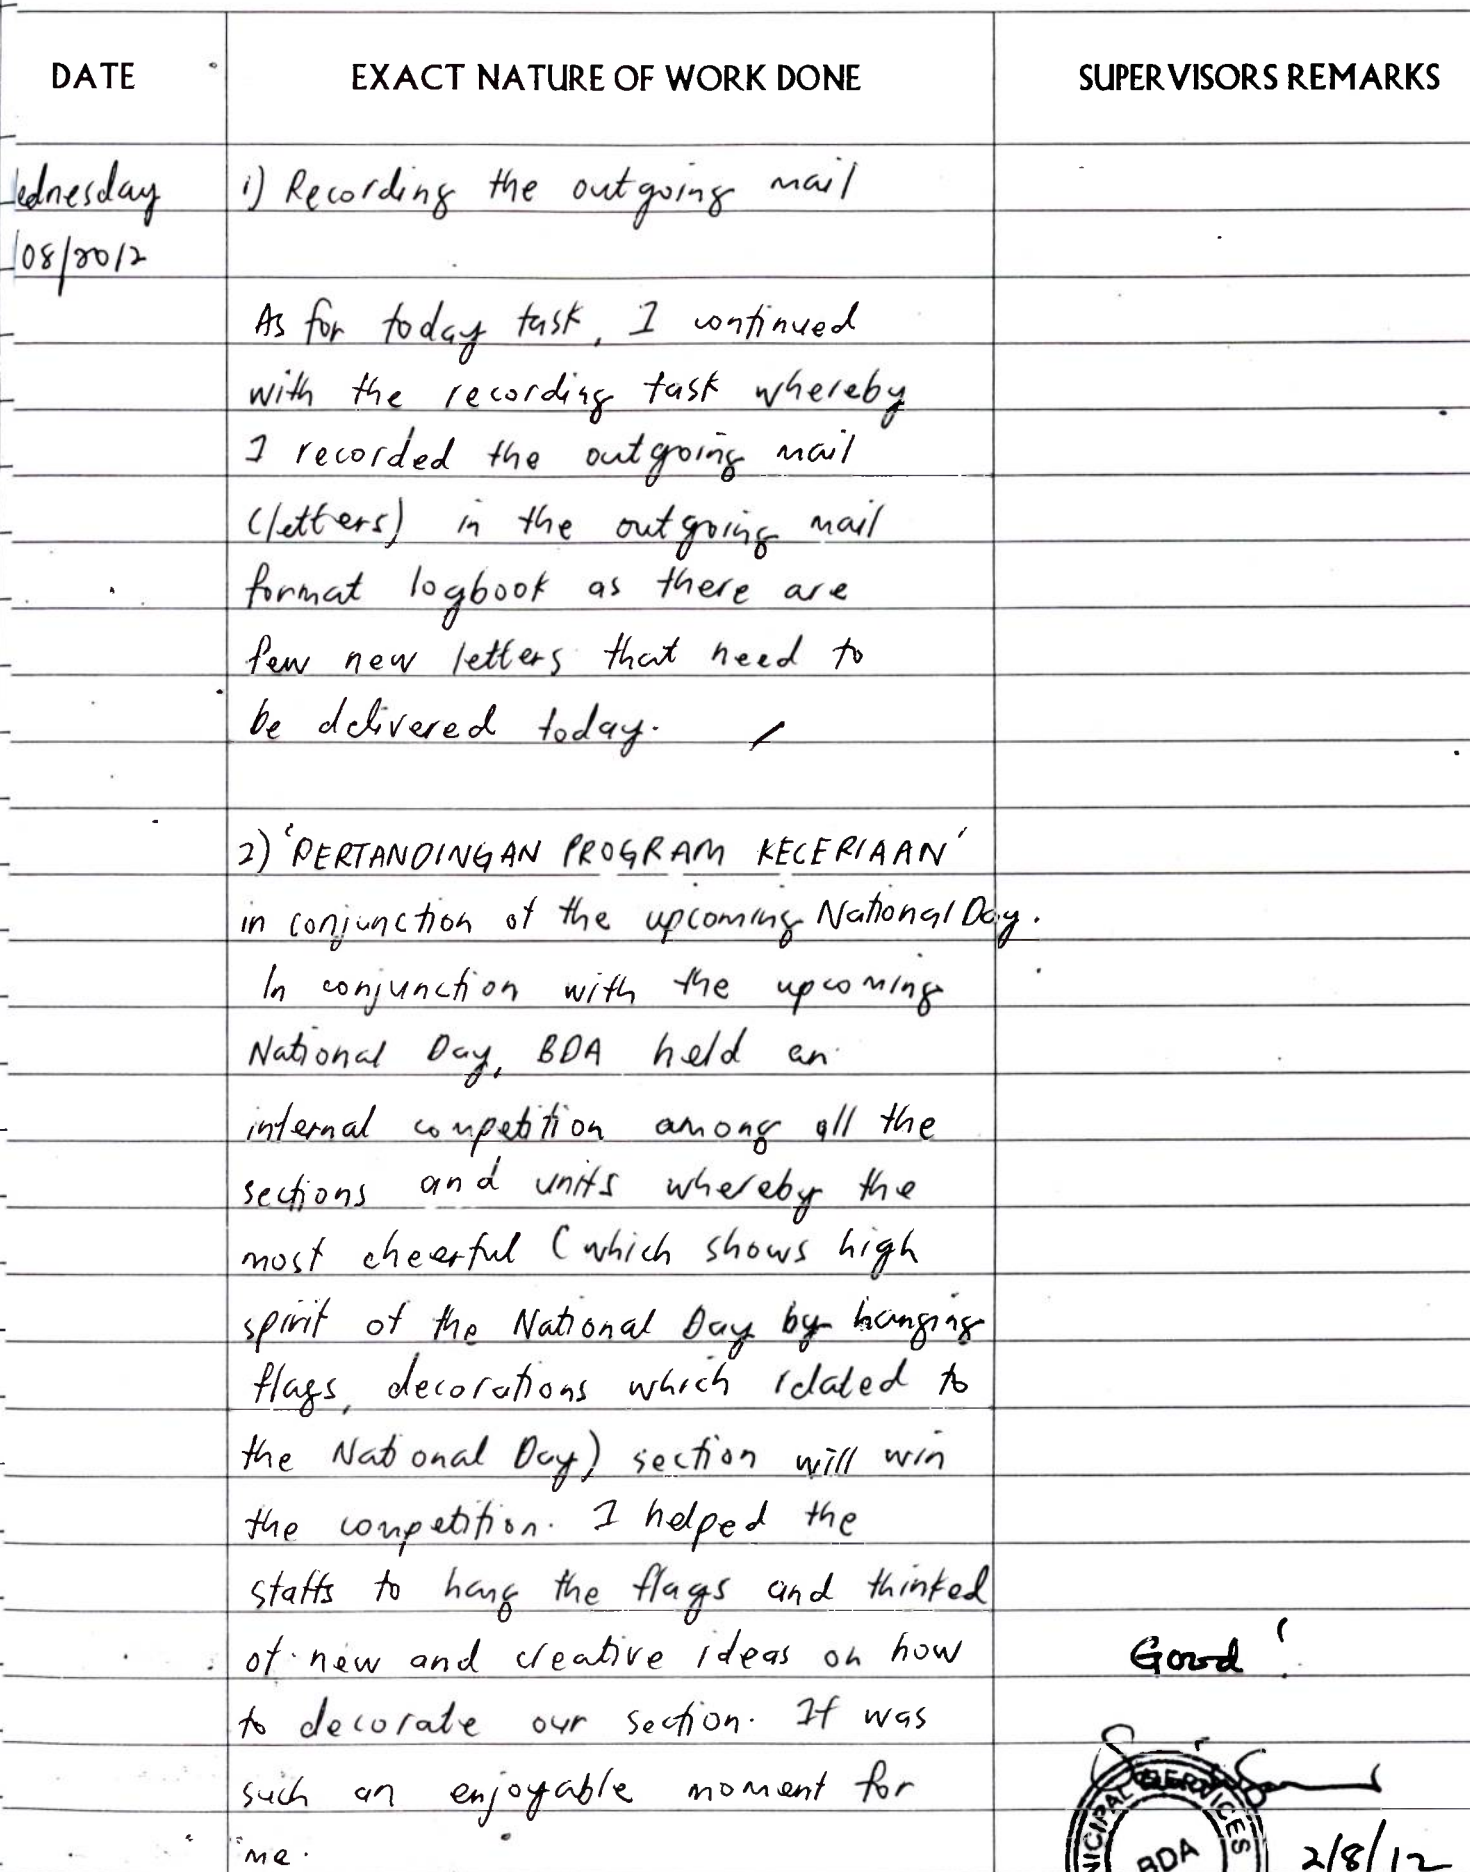 DATE EXACT NATURE OF WORK DONE SUPERVISORS REMARKS
ednesday 1) Recording the outgoing mail
/08/2012
As for today task, I continued
with the recording task whereby
I recorded the outgoing mail
(letters) in the outgoing mail
format logbook as there are
few new letters that need to
be delivered today.
2) 'PERTANDINGAN PROGRAM KECERIAAN'
in conjunction of the upcoming National Day.
In conjunction with the upcoming
National Day, BDA held an
internal competition among all the
sections and units whereby the
most cheerful (which shows high
spirit of the National Day by hanging
flags, decorations which related to
the National Day) section will win
the competition. I helped the
staffs to hang the flags and thinked
of new and creative ideas on how Good!
to decorate our section. It was
such an enjoyable moment for
me.
NICIPAL SERVICES
BDA
2/8/12